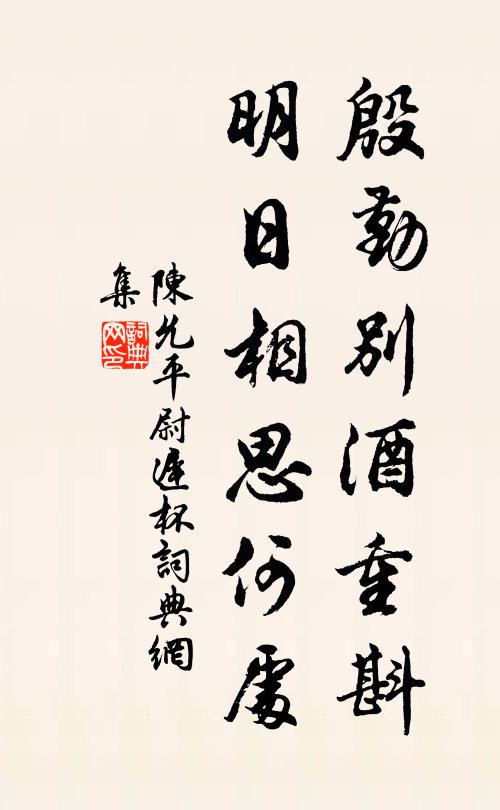 殷勤別酒重斟
明日相思何處
陳允平尉遲杯詞典網
集
詞典网印